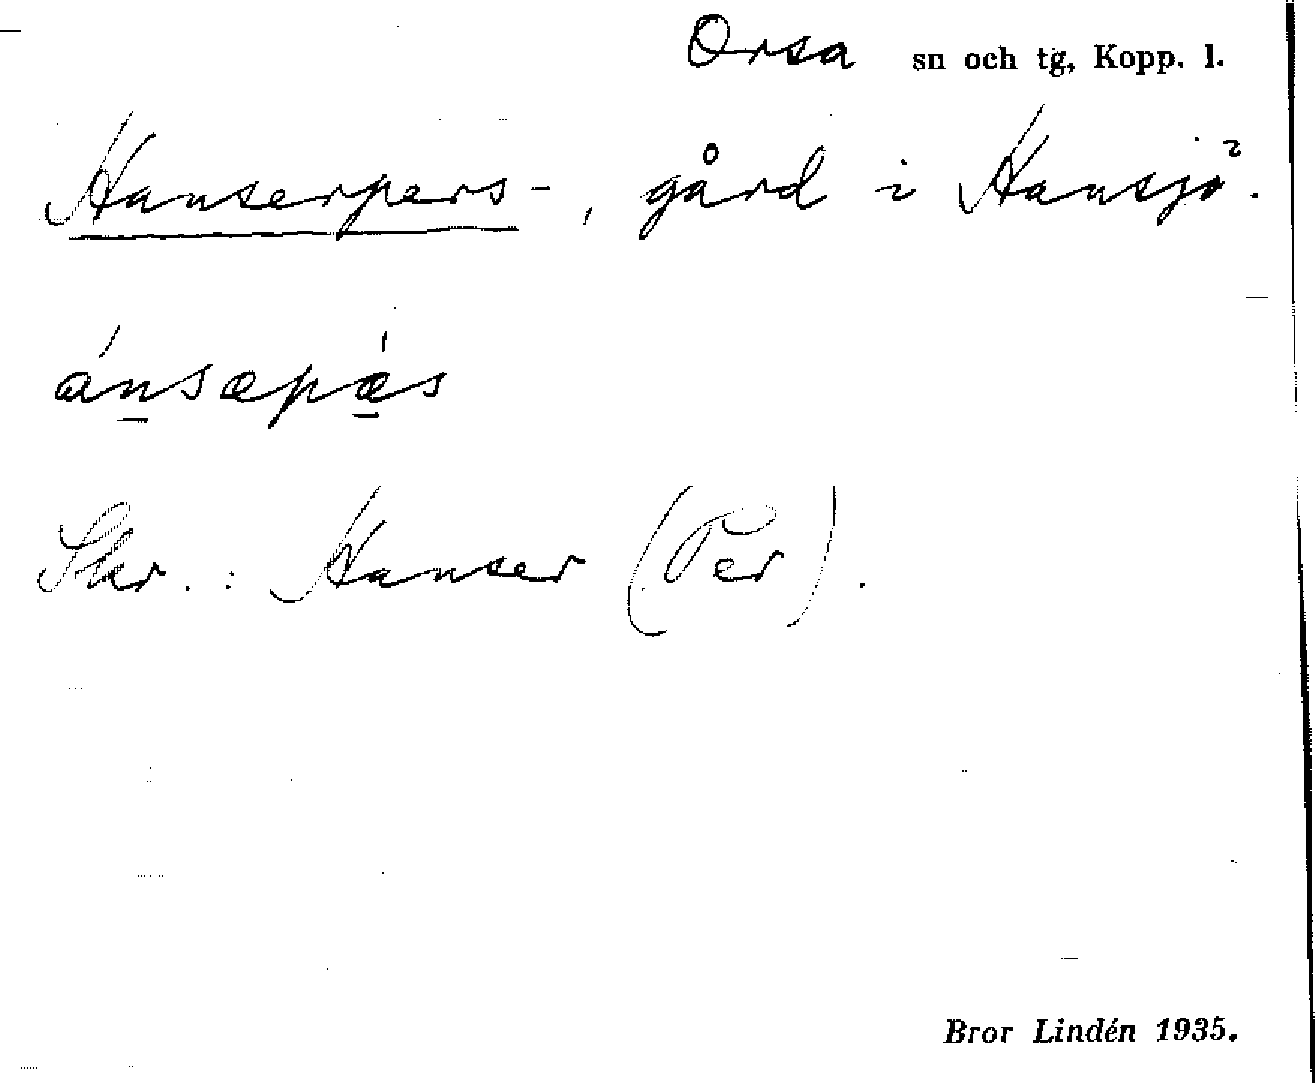 Orsa sn och tg, Kopp. l.
Hanserpers-, gård i Hansjö.
ánsæpǽs
Skr.: Hanser (Per).
Bror Lindén 1935.